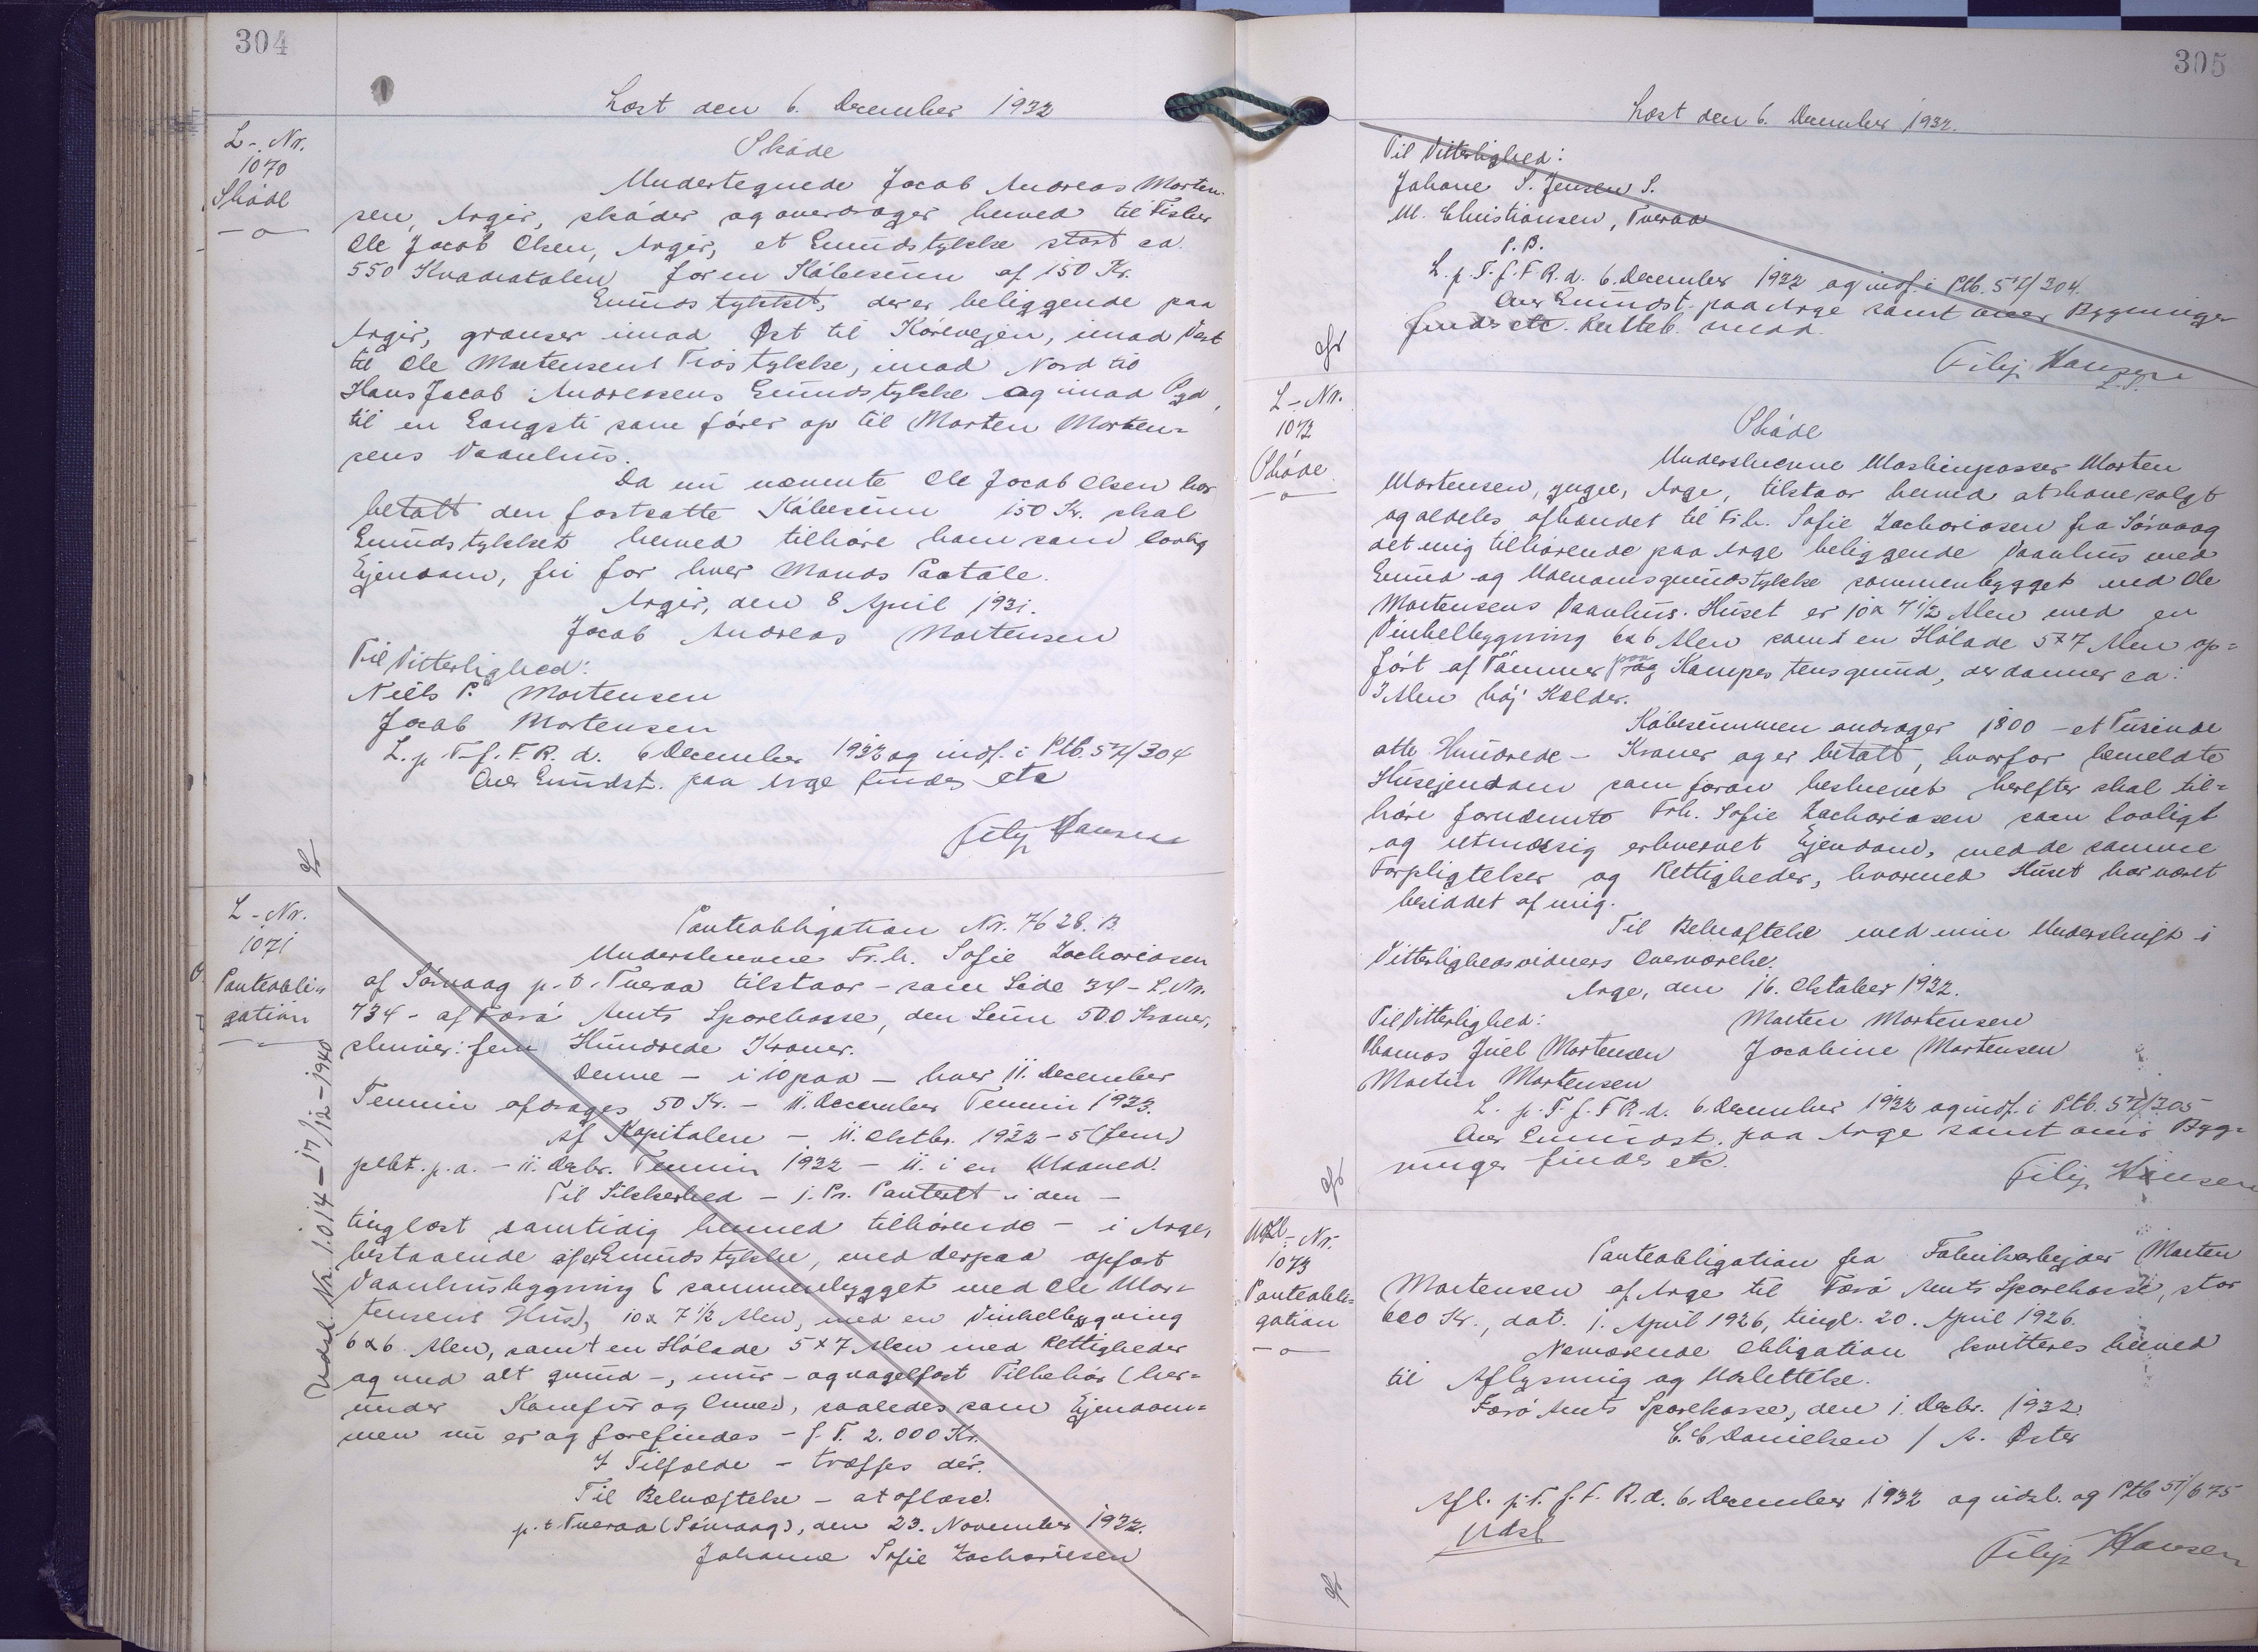 304
Læst den 6. December 1932
L-. Nr.
1070
Skøde
Skøde
Undertegnede Jacob Andreas Morten-
sen, Argir, skøder og overdrager herved til Fisker
Ole Jacob Olsen, Argir, et Grundstykke stort ca.
550 Kvadratalen for en Købesum af 150 Kr.
Grundstykket, der er beliggende paa
Argir, grænser imod Øst til Kørevejen, imod Vest
til Ole Mortensens Trøstykke, imod Nord til
Hans Jacob Andreasens Grundstykke og imod Syd
til en Gangsti som fører op til Morten Morten=
sens Vaanhus.
Da nu nævnte Ole Jacob Olsen har
betalt den fastsatte Købesum 150 Kr. skal
Grundstykket herved tilhøre ham som lovlig
Ejendom, fri for hver Mands Paatale.
Argir, den 8 April 1931.
Jacob Andreas Mortensen
Til Vitterlighed:
Niels P. Mortensen
Jacob Mortensen
L. p. T. f. F. R. d. 6 December 1932 og indf. i Ptb. 5 /304
Over Grundst. paa Arge findes etc
Filip Hansen
L-Nr.
1071
Panteobli=
gation
Udsl. Nr. 1.014 – 17/12 – 1940
Panteobligation Nr. 7628. B.
Underskrevne Frk. Sofie Zachariasen
af Sørvaag p. t. Tveraa tilstaar – som Side 34 – L. Nr.
734 – af Færø Amts Sparekasse, den Sum 500 Kroner,
skriver: fem Hundrede Kroner.
Denne – i 10 paa – hver 11. December
Termin afdrages 50 Kr. – 11. December Termin 1933.
Af Kapitalen – 11. Oktbr. 1932 – 5 (fem)
pCt. p. a. – 11. Decbr. Termin 1932 – 11. i en Maaned.
Til Sikkerhed – 1. Pr. Panteret i den –
tinglæst samtidig hermed tilhørende – i Arge,
bestaaende af Grundstykke, med derpaa opført
Vaanhusbygning (sammenbygget med Ole Mor=
tensens Hus), 10 x 7 1/2 Alen, med en Vinkelbygning
6 x 6 Alen, samt en Hølade 5 x 7 Alen med Rettigheder
og med alt grund-, mur- og nagelfast Tilbehør (her=
under Komfur og Ovne), saaledes som Ejendom=
men nu er og forefindes – f. T. 2.000 Kr.
I Tilfælde – træffes dér.
Til Bekræftelse – at aflæse.
p. t. Tveraa (Sørvaag), den 23. November 1932.
Johanne Sofie Zachariasen
305
Læst den 6. December 1932.
Til Vitterlighed:
Johane S. Jensen S.
M. Christiansen, Tveraa
P. B.
L. p. T. f. F. R. d. 6. December 1932 og indf. i Ptb. 5 /304.
Over Grundst. paa Arge samt over Bygninger
findes etc. Retteb. mod.
Filip Hansen
L. S.
L-Nr.
1072
Skøde
Skøde
Underskrevne Maskinpasser Morten
Mortensen, yngre, Arge, tilstaar herved at have solgt
og aldeles afhændet til Frk. Sofie Zachariasen fra Sørvaag
det mig tilhørende paa Arge beliggende Vaanhus med
Grund og Udenomsgrundstykke sammenbygget med Ole
Mortensens Vaanhus. Huset er 10 x 7 1/2 Alen med en
Vinkelbygning 6 x 6 Alen samt en Hølade 5 x 7 Alen op=
ført af Tømmer paa Kampestensgrund, der danner ca.
3 Alen høj Kælder.
Købesummen andrager 1800 – et Tusinde
otte Hundrede – Kroner og er betalt, hvorfor bemeldte
Husejendom som foran beskrevet herefter skal til=
høre fornævnte Frk. Sofie Zachariasen som lovligt
og retmæssig erhvervet Ejendom, med de samme
Forpligtelser og Rettigheder, hvormed Huset har været
besiddet af mig.
Til Bekræftelse med min Underskrift i
Vitterlighedsvidners Overværelse.
Arge, den 16. Oktober 1932.
Til Vitterlighed:
Morten Mortensen
Thomas Juel Mortensen Jacobine Mortensen
Martin Mortensen
L. p. T. f. F. R. d. 6. December 1932 og indf. i Ptb. 5 /305
Over Grundst. paa Arge samt over Byg=
ninger findes etc.
Filip Hansen
L-Nr.
1073
Panteobli=
gation
Panteobligation fra Fabrikarbejder Morten
Mortensen af Arge til Færø Amts Sparekasse, stor
600 Kr., dat. 1. April 1926, tingl. 20. April 1926.
Nærværende Obligation kvitteres herved
til Aflysning og Udslettelse.
Færø Amts Sparekasse, den 1. Decbr. 1932.
C. C Danielsen / A. Øster
Afl. p. T. f. F. R. d. 6. December 1932 og udsl. og Ptb 51/675
Udsl
Filip Hansen